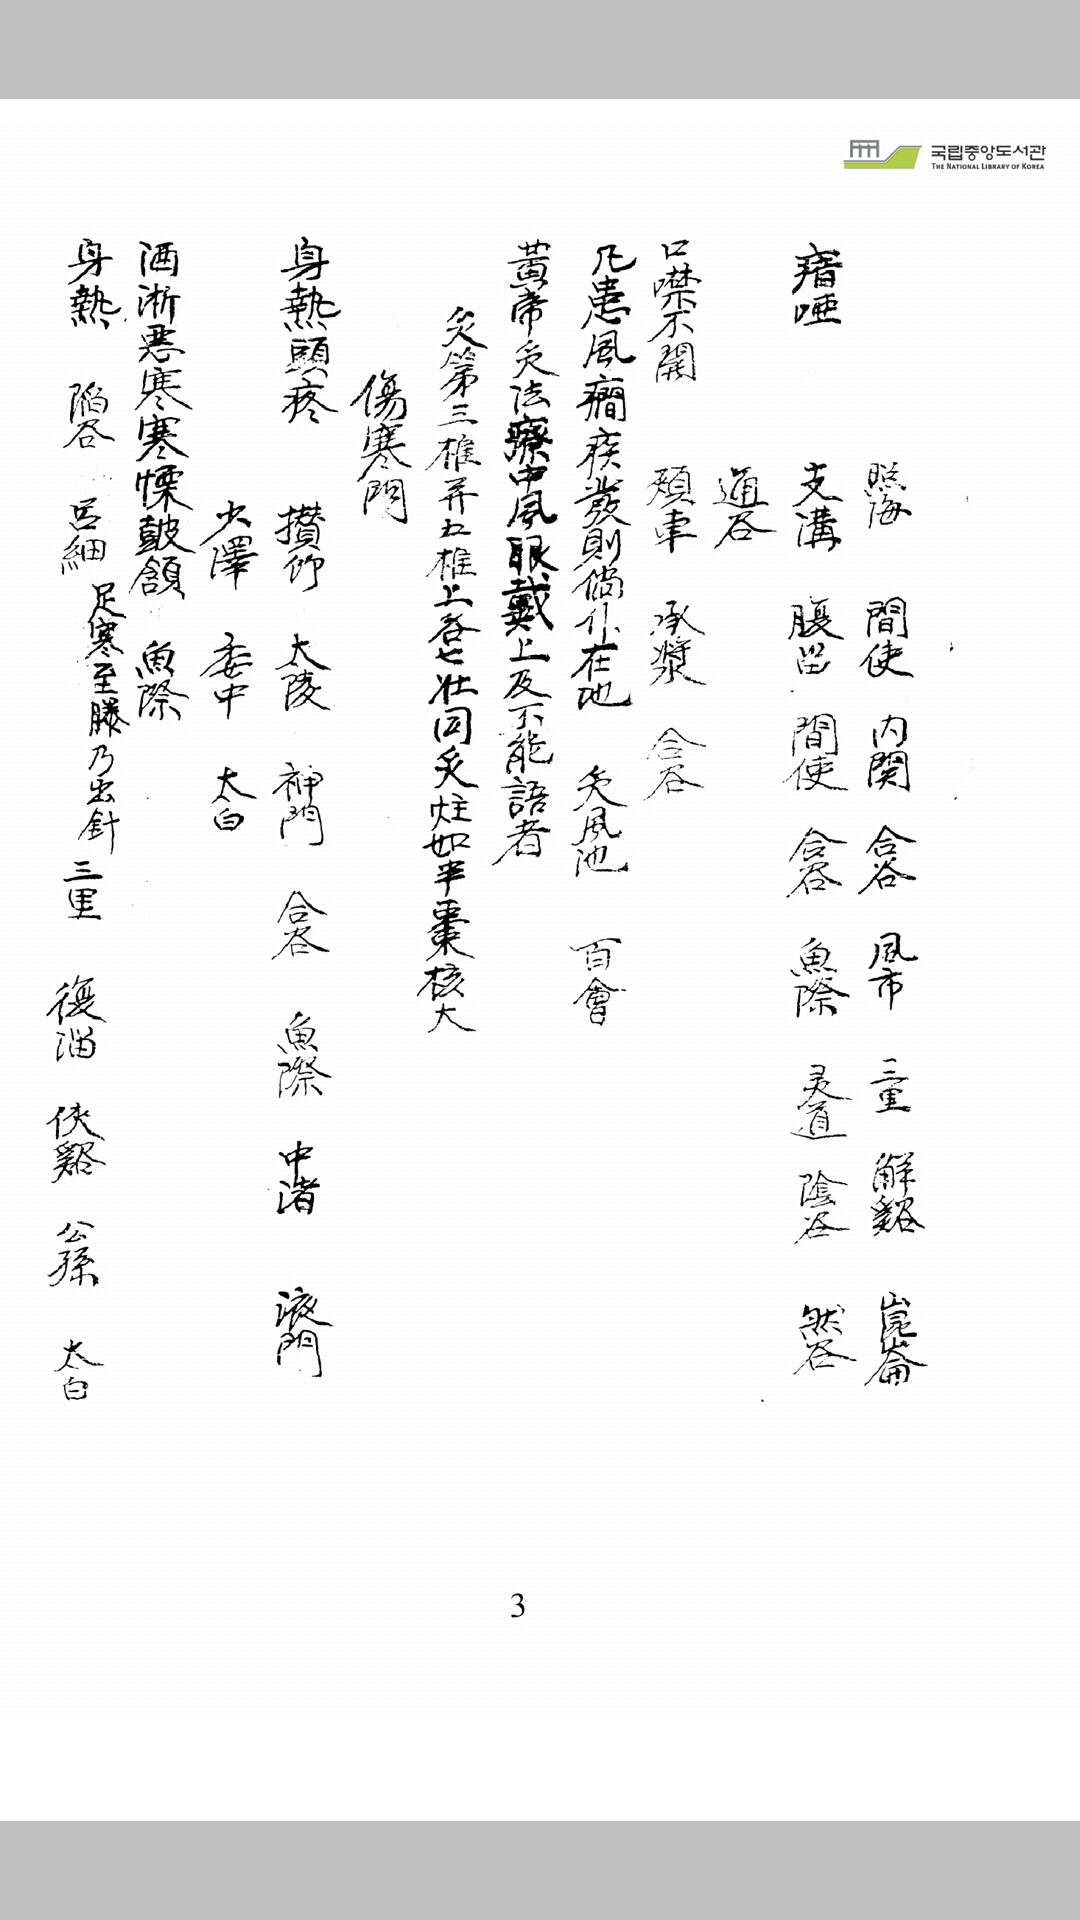 국립중앙도서관
THE NATIONAL LIBRARY OF KOREA
照海 間使 內関 合谷 風市 三里 解谿 崑崙
瘖啞 支溝 腹留 間使 合谷 魚際 灵道 陰谷 然谷
通谷
口噤不開 頰車 承漿 合谷
凡患風癎疾發則偃仆在地 灸風池 百會
黃帝灸法療中風眼戴上及不能語者
灸第三椎并五椎上各七壯同灸炷如半棗核大
傷寒門
身熱頭疼 攅竹 大陵 神門 合谷 魚際 中渚 液門
少澤 委中 太白
洒淅惡寒寒慄鼓頷 魚際
身熱 陷谷 呂細 足寒至膝乃出針 三里 復溜 俠谿 公孫 太白
3